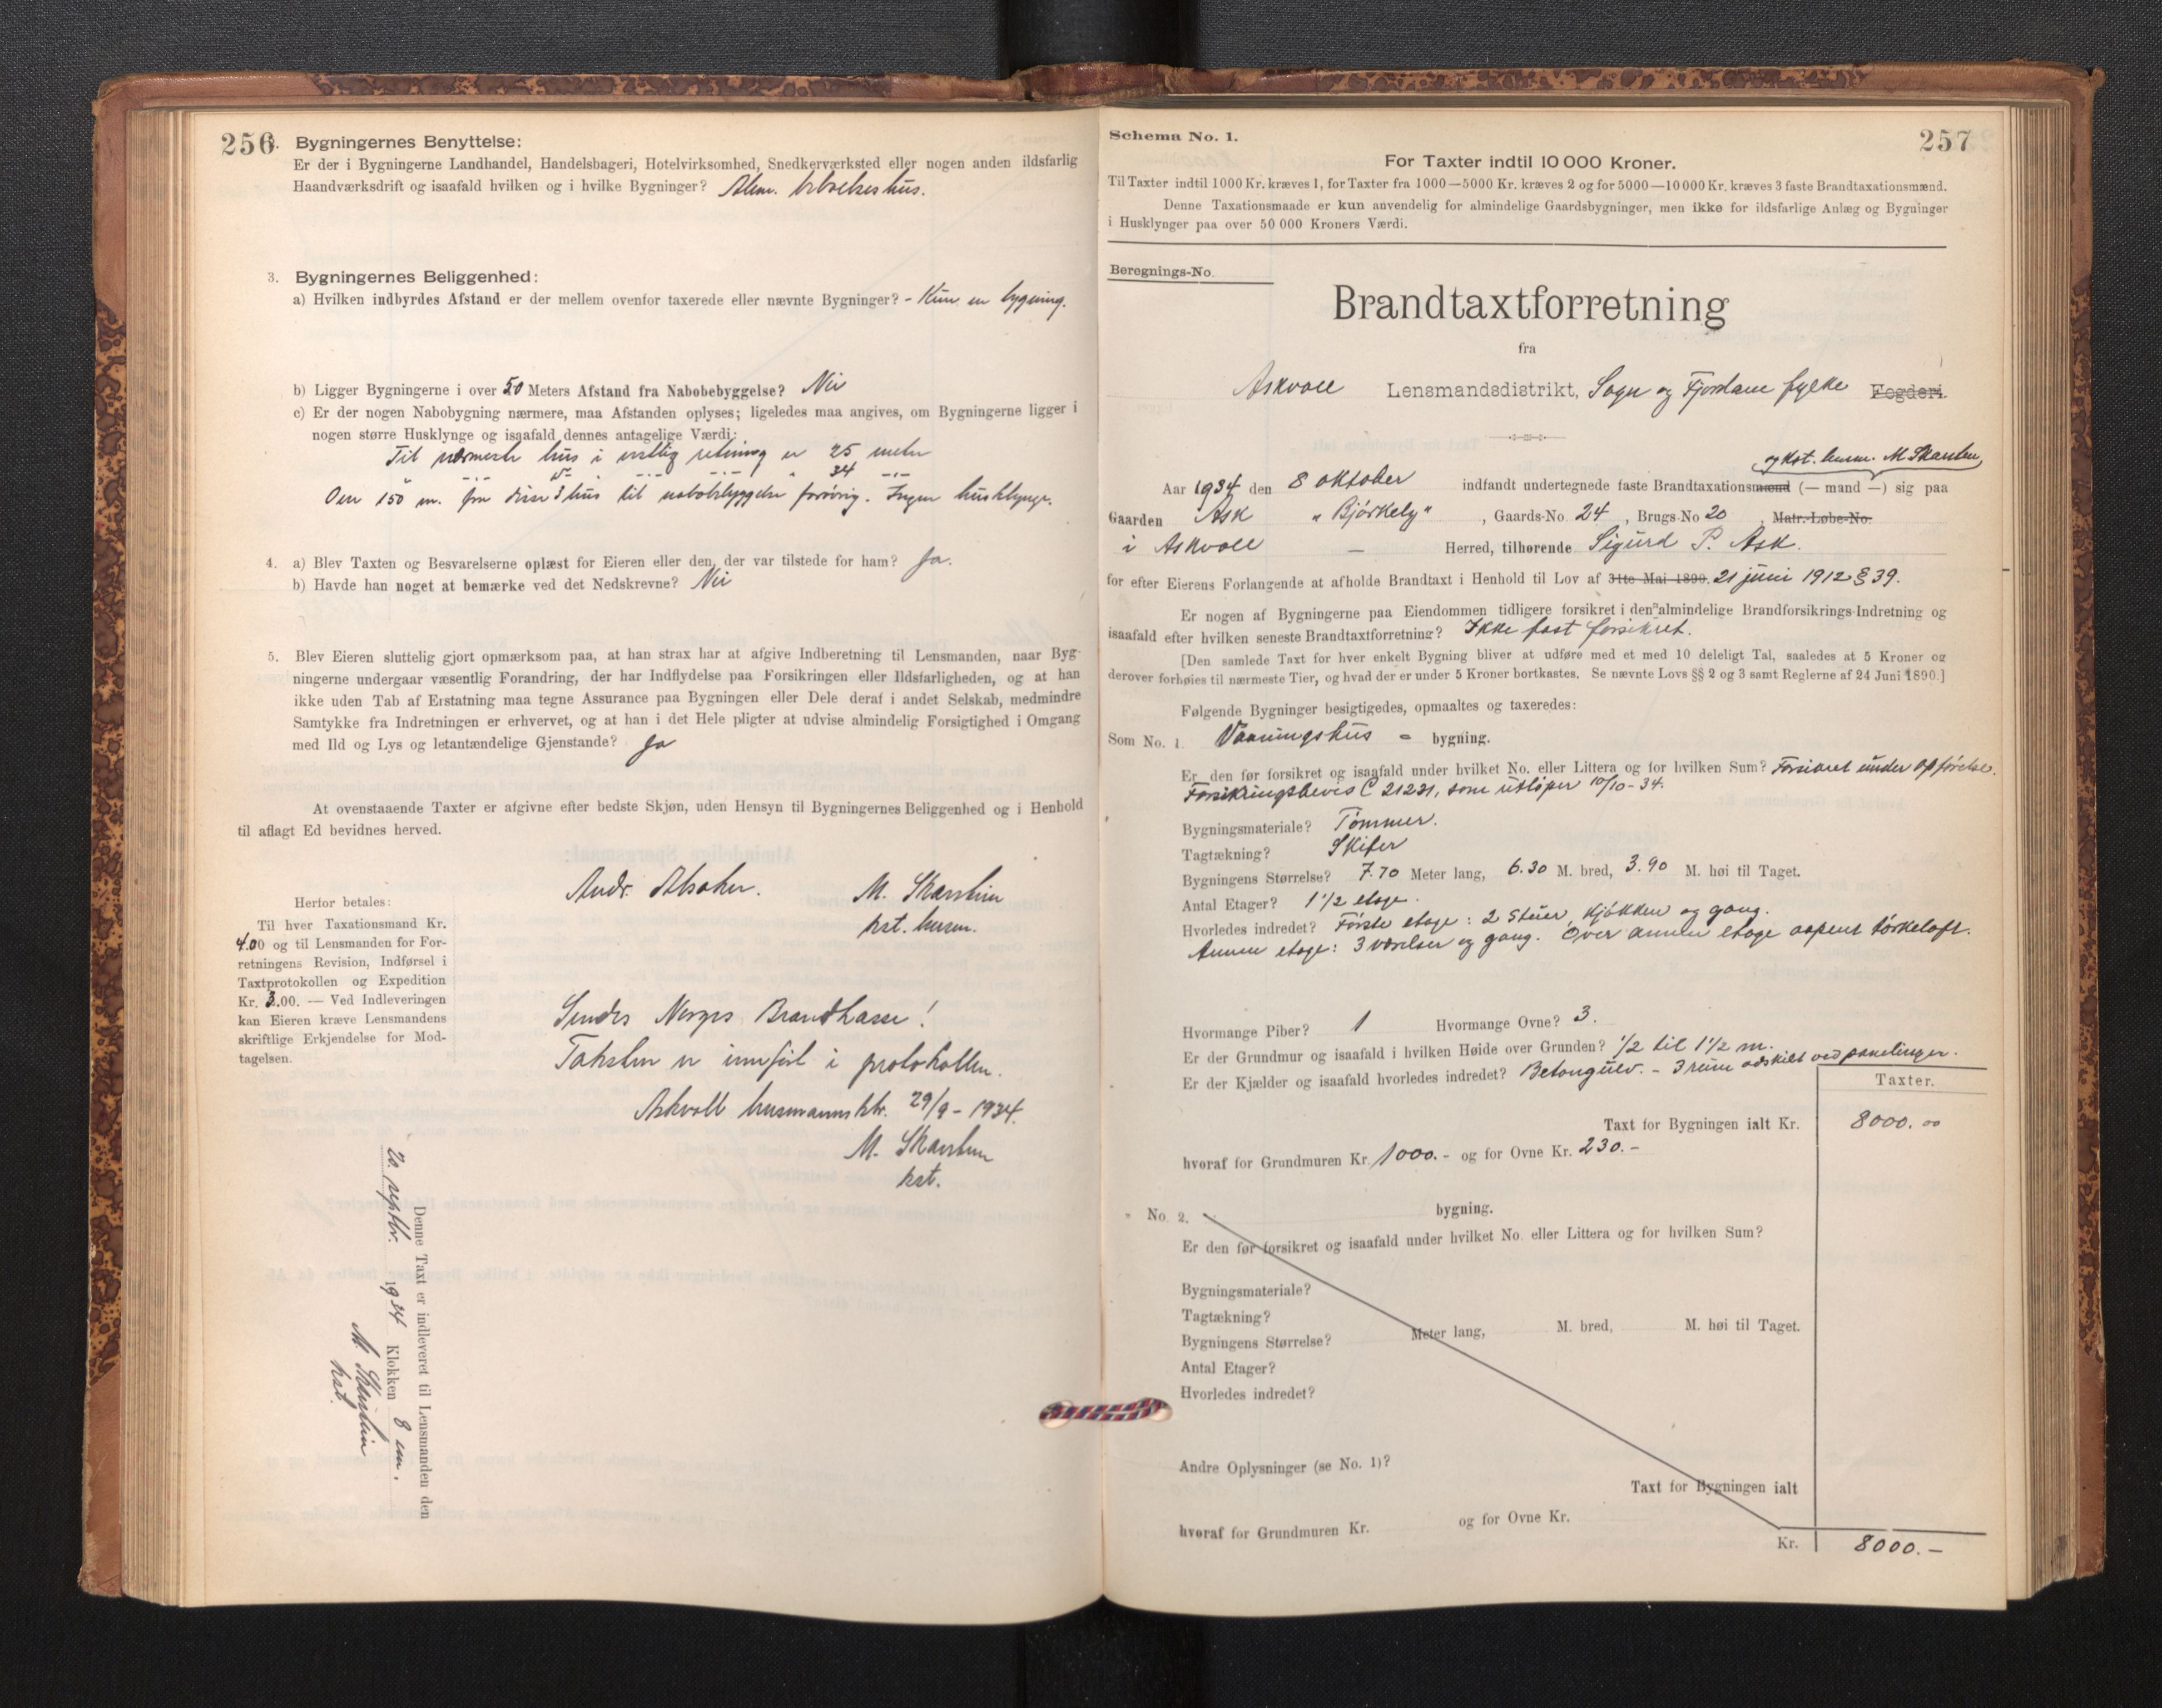 256
2. Bygningernes Benyttelse:
Er der i Bygningerne Landhandel, Handelsbageri, Hotelvirksomhed, Snedkerværksted eller nogen anden ildsfarlig
Haandværksdrift og isaafald hvilken og i hvilke Bygninger? Alm. beboelseshus.
3. Bygningernes Beliggenhed:
a) Hvilken indbyrdes Afstand er der mellem ovenfor taxerede eller nævnte Bygninger? - Kun en bygning.
b) Ligger Bygningerne i over 50 Meters Afstand fra Nabobebyggelse? Nei
c) Er der nogen Nabobygning nærmere, maa Afstanden oplyses; ligeledes maa angives, om Bygningerne ligger i
nogen større Husklynge og isaafald dennes antagelige Værdi:
Til nærmeste hus i vestlig retning er 25 meter
34
Over 150 m. fra disse 3 hus til nabobebyggelse forøvrig. Ingen husklynge.
4. a) Blev Taxten og Besvarelserne oplæst for Eieren eller den, der var tilstede for ham? Ja.
b) Havde han noget at bemærke ved det Nedskrevne? Nei
5. Blev Eieren sluttelig gjort opmærksom paa, at han strax har at afgive Indberetning til Lensmanden, naar Byg-
ningerne undergaar væsentlig Forandring, der har Indflydelse paa Forsikringen eller Ildsfarligheden, og at han
ikke uden Tab af Erstatning maa tegne Assurance paa Bygningen eller Dele deraf i andet Selskab, medmindre
Samtykke fra Indretningen er erhvervet, og at han i det Hele pligter at udvise almindelig Forsigtighed i Omgang
med Ild og Lys og letantændelige Gjenstande? Ja
At ovenstaaende Taxter er afgivne efter bedste Skjøn, uden Hensyn til Bygningernes Beliggenhed og i Henhold
til aflagt Ed bevidnes herved.
Andr. M. Skarstein
kst. lensm.
Herfor betales:
Til hver Taxationsmand Kr.
4.00 og til Lensmanden for For-
retningens Revision, Indførsel i
Taxtprotokollen og Expedition
Kr. 3.00. — Ved Indleveringen
kan Eieren kræve Lensmandens
skriftlige Erkjendelse for Mod-
tagelsen.
Sendes Norges Brandkasse!
Taksten er innført i protokollen.
Askvoll lensmannsktr. 29/9-1934.
M. Skarstein
kst.
Denne Taxt er indleveret til Lensmanden den
20. septbr. 1934 Klokken 8 em.
M Skarstein
kst.
257
Schema No. 1.
For Taxter indtil 10 000 Kroner.
Til Taxter indtil 1000 Kr. kræves 1, for Taxter fra 1000—5000 Kr. kræves 2 og for 5000—10 000 Kr. kræves 3 faste Brandtaxationsmænd.
Denne Taxationsmaade er kun anvendelig for almindelige Gaardsbygninger, men ikke for ildsfarlige Anlæg og Bygninger
i Husklynger paa over 50 000 Kroners Værdi.
Beregnings-No.
Brandtaxtforretning
fra
Askvoll Lensmandsdistrikt, Sogn og Fjordane fylke Fogderi.
og kst. lensm. M. Skarstein
Aar 1934 den 8 oktober indfandt undertegnede faste Brandtaxationsmænd (— mand —) sig paa
Gaarden Ask "Bjørkely", Gaards-No. 24, Brugs-No 20 Matr.-Løbe-No.
i Askvoll — Herred, tilhørende Sigurd P. Ask.
for efter Eierens Forlangende at afholde Brandtaxt i Henhold til Lov af 31te Mai 1890. 21 juni 1912 § 39.
Er nogen af Bygningerne paa Eiendommen tidligere forsikret i den almindelige Brandforsikrings-Indretning og
isaafald efter hvilken seneste Brandtaxtforretning? Ikke fast forsikret.
[Den samlede Taxt for hver enkelt Bygning bliver at udføre med et med 10 deleligt Tal, saaledes at 5 Kroner og
derover forhøies til nærmeste Tier, og hvad der er under 5 Kroner bortkastes. Se nævnte Lovs §§ 2 og 3 samt Reglerne af 24 Juni 1890.]
Følgende Bygninger besigtigedes, opmaaltes og taxeredes:
Som No. 1. Vaaningshus - bygning.
Er den før forsikret og isaafald under hvilket No. eller Littera og for hvilken Sum? Forsikret under opførelse.
Forsikringsbevis C 21231, som utløper 10/10-34.
Bygningsmateriale? Tømmer.
Tagtækning? Skifer
Bygningens Størrelse? 7.70 Meter lang, 6.30 M. bred, 3.90 M. høi til Taget.
Antal Etager? 1 1/2 etage.
Hvorledes indredet? Første etage: 2 stuer, kjøkken og gang.
Annen etage: 3 værelser og gang. Over annen etage aapent tørkeloft.
Hvormange Piber? 1 Hvormange Ovne? 3.
Er der Grundmur og isaafald i hvilken Høide over Grunden? 1/2 til 1 1/2 m.
Er der Kjælder og isaafald hvorledes indredet? Betongulv. - 3 rum adskilt ved panelinger.
Taxter.
Taxt for Bygningen ialt Kr. 8000.00
hvoraf for Grundmuren Kr. 1000.- og for Ovne Kr. 230.-
No. 2. bygning.
Er den før forsikret og isaafald under hvilket No. eller Littera og for hvilken Sum?
Bygningsmateriale?
Tagtækning?
Bygningens Størrelse? Meter lang, M. bred, M. høi til Taget.
Antal Etager?
Hvorledes indredet?
Andre Oplysninger (se No. 1)?
Taxt for Bygningen ialt
hvoraf for Grundmuren Kr. og for Ovne Kr.
Kr. 8000.-